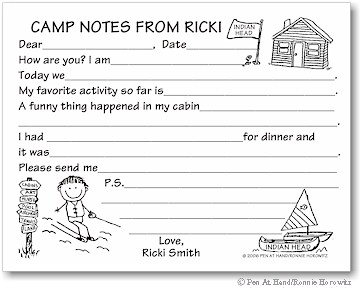 CAMP NOTES FROM RICKI
INDIAN HEAD
Dear____________, Date________
How are you? I am____________
Today we____________
My favorite activity so far is____________
A funny thing happened in my cabin____________
____________.
I had____________for dinner and
it was____________.
Please send me____________
P.S.____________
CABINS
POOL
Love,
Ricki Smith
INDIAN HEAD
© 2006 PEN AT HAND/RONNIE HOROWITZ
© Pen At Hand/Ronnie Horowitz